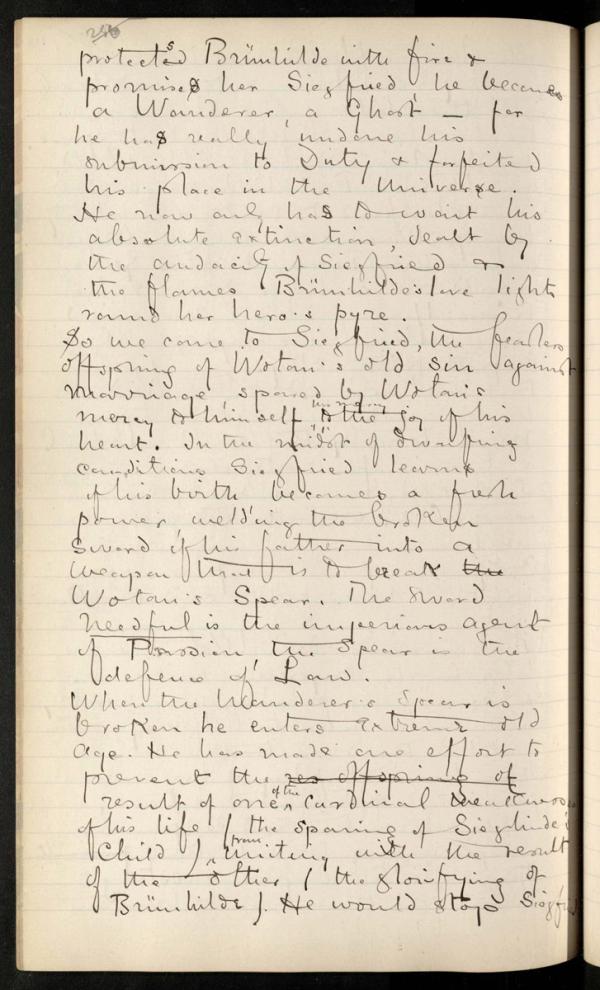 256
protected Brünhilde with fire &
promised her Siegfried, he becomes
a Wanderer, a Ghost — for
he has really undone his
submission to Duty & forfeited
his place in the Universe.
He now only has to wait his
absolute extinction, dealt by
the audacity of Siegfried &
the flames Brünhilde's love lights
round her hero's pyre.
So we come to Siegfried, the fearless
offspring of Wotan's old sin against
marriage, spared by Wotan's
mercy to himself to the joy of his
heart. In the midst of dwarfing
conditions Siegfried learns
of his birth becomes a fresh
power, welding the broken
Sword of his father into a
weapon that is to break the
Wotan's Spear. The Sword
Needful is the imperious agent
of Passion, the Spear is the
defence of Law.
When the Wanderer's Spear is
broken he enters extreme old
age. He has made one effort to
prevent the res offspring of
result of one of the cardinal weaknesses
of his life (the sparing of Sieglinde's
Child) from uniting with the result
of the other (the glorifying of
Brünhilde). He would stop Siegfried